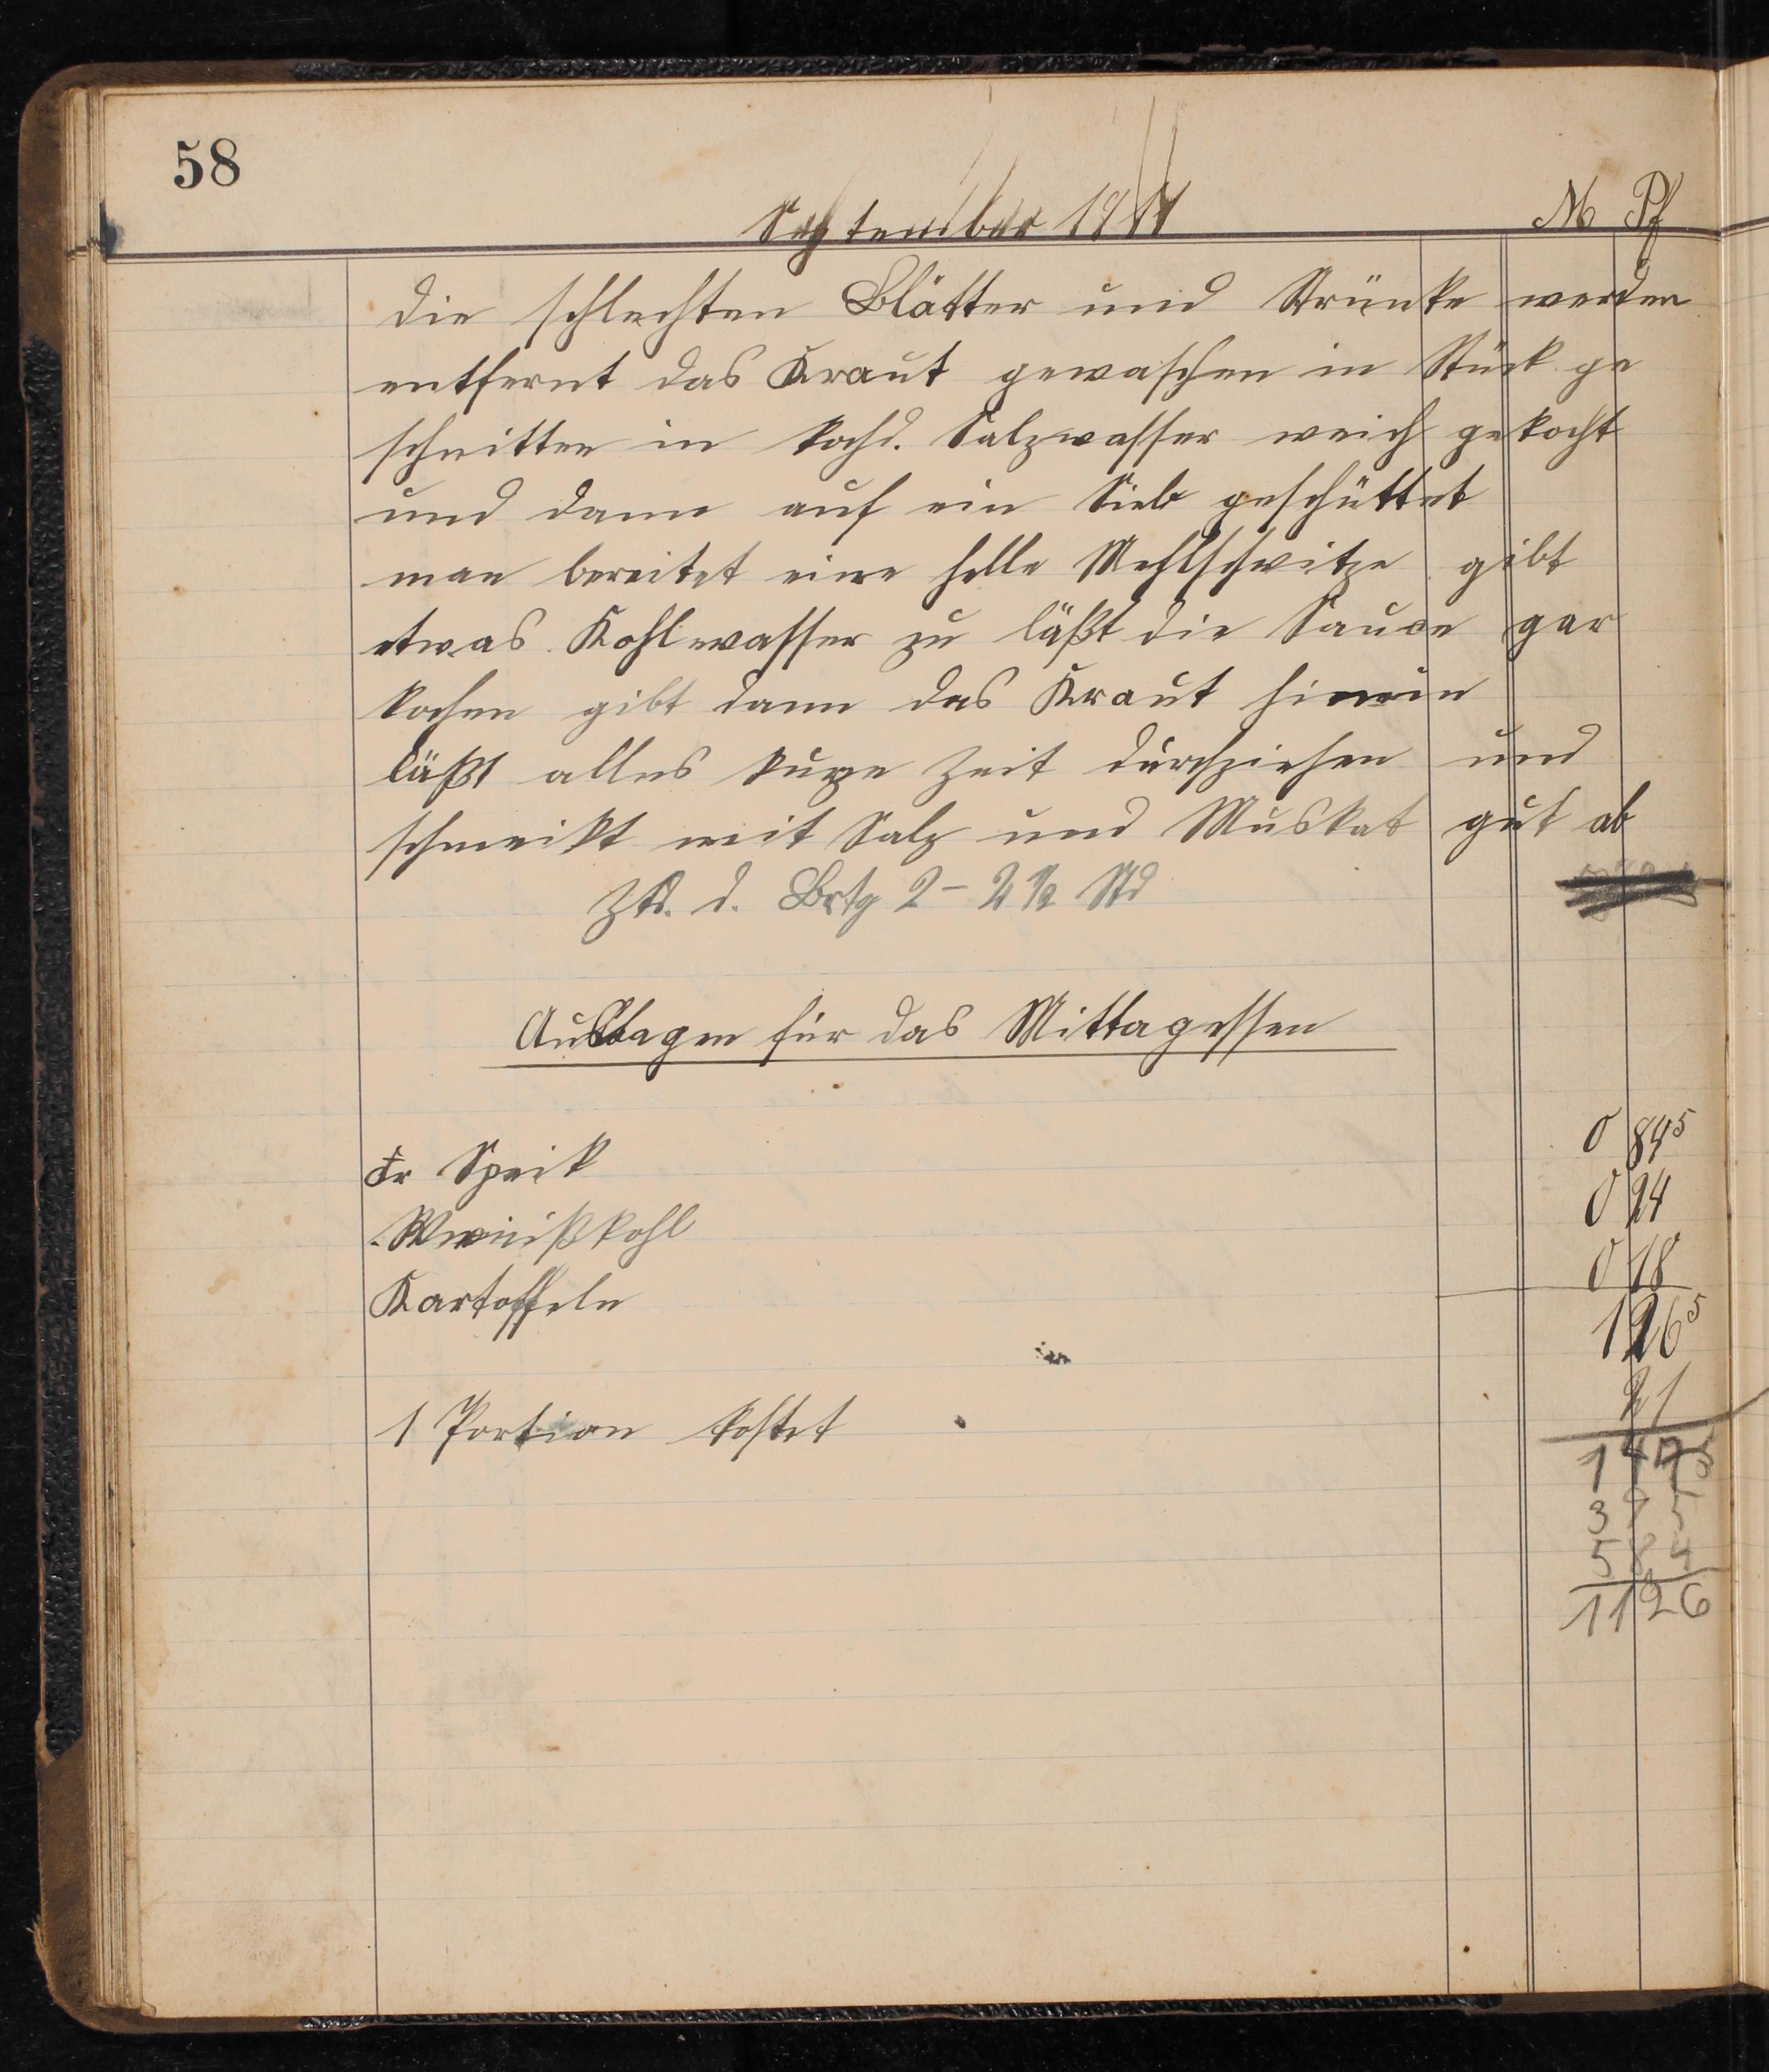 58
September 1911
M Pf
die schlechten Blätter und Strünke werden
entfernt das Kraut gewaschen in Stück ge
schnitten in kochd. Salzwasser weich gekocht
und dann auf ein Sieb geschüttet
man bereitet eine helle Mehlschwitze gibt
etwas Kohlwasser zu läßt die Sauce gar
kochen gibt dann das Kraut hinein
läßt alles kurze Zeit durchziehen und
schmeckt mit Salz und Muskat gut ab
Ztd. d. Brtg 2 - 2 1/2 Std
Auslagen für das Mittagessen
Fr Speck 0 84 5
Weißkohl 0 24
Kartoffeln 0 18
1 26 5
1 Portion kostet 21
1 47 5
5 8 4
11 26